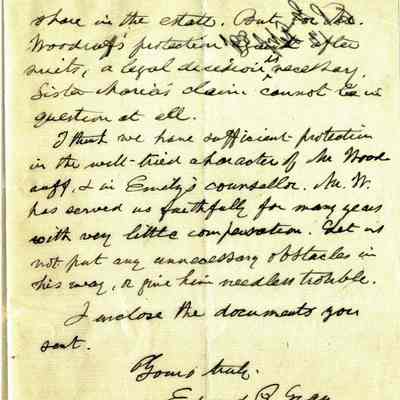 share in the estate. But for Mr.
Woodruff's protection against after
suits, a legal decision is necessary.
Sister Maria's claim cannot be in
question at all.
I think we have sufficient protection
in the well-tried character of Mr Wood
ruff, & in Emily's counsellor. Mr. W.
has served us faithfully for many years
with very little compensation. Let us
not put any unnecessary obstacles in
his way, or give him needless trouble.
I enclose the documents you
sent.
Yours truly.